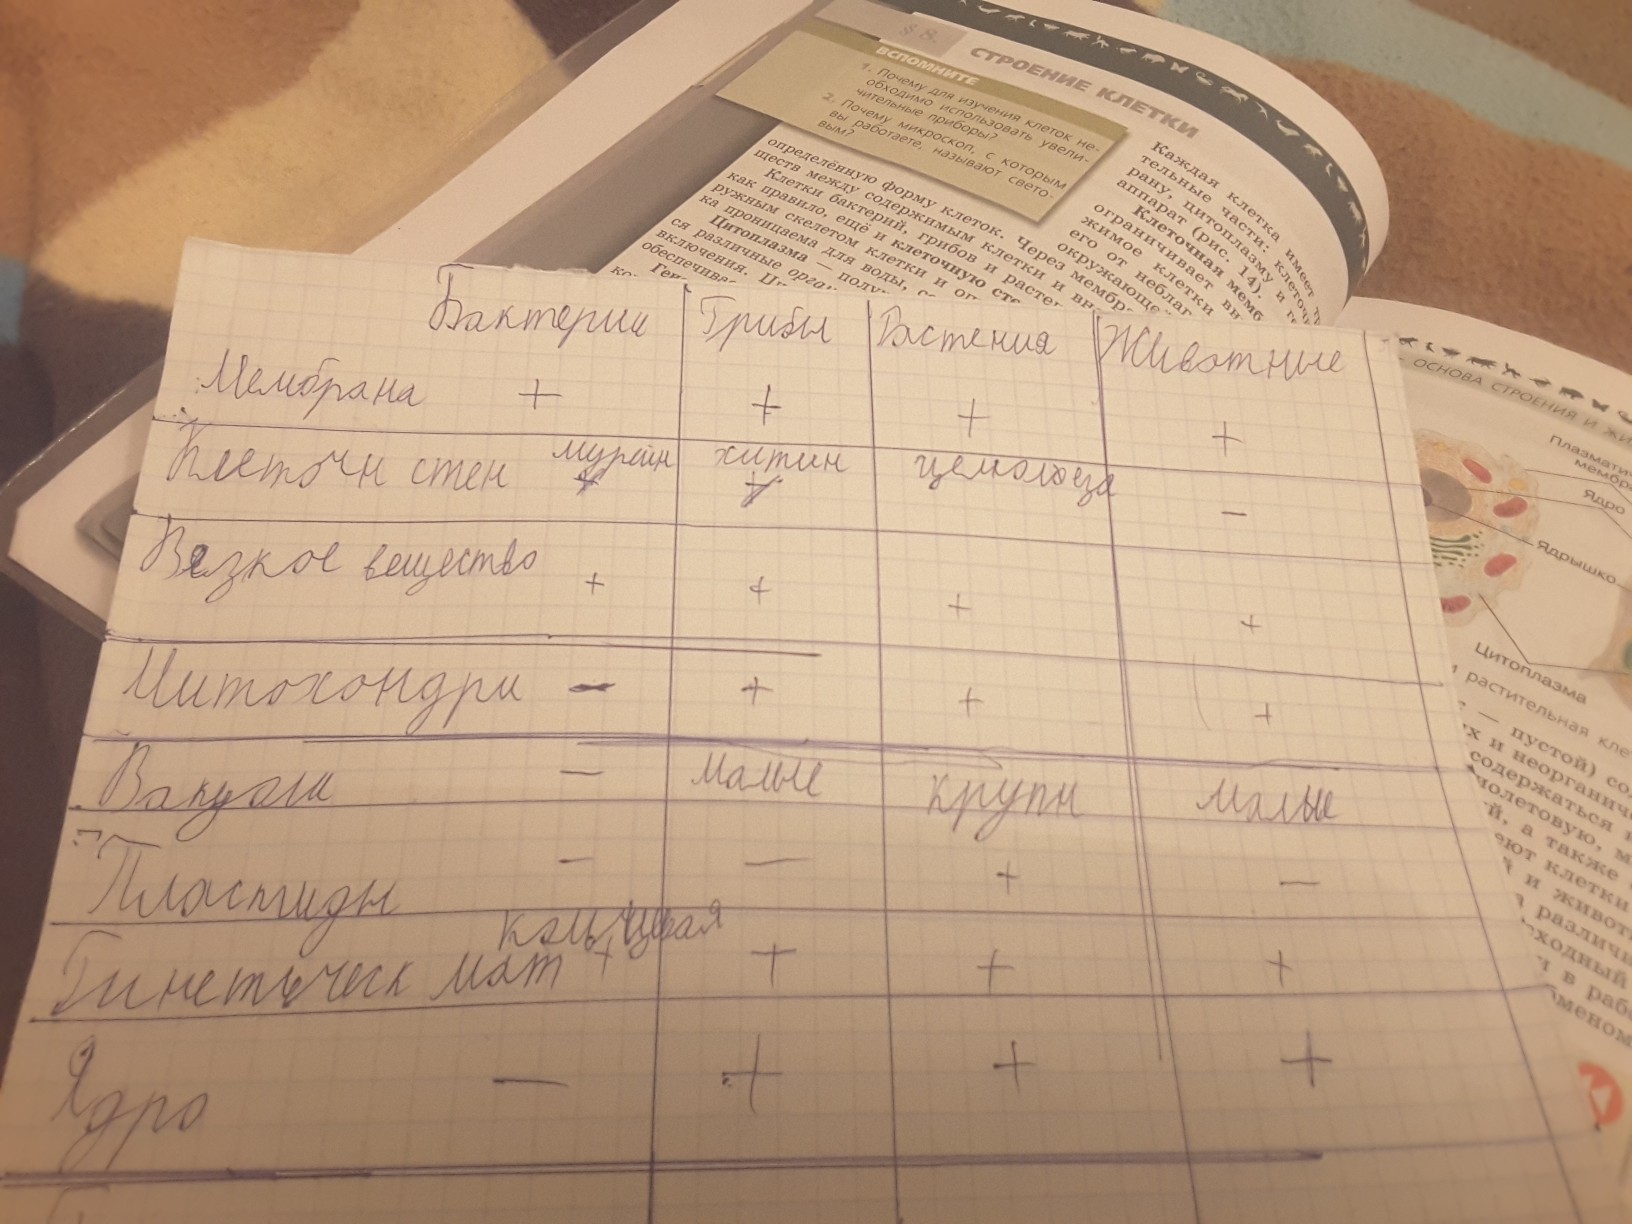 § 8.
СТРОЕНИЕ КЛЕТКИ
ВСПОМНИТЕ
1. Почему для изучения клеток не-
обходимо использовать увели-
чительные приборы?
2. Почему микроскоп, с которым
вы работаете, называют свето-
вым?
Каждая клетка имеет
тельные части: клеточ
рану, цитоплазму и г
аппарат (рис. 14).
Клеточная мемб
ограничивает
жимое клетки
его от неблаг
окружающе
определённую форму клеток. Через мембр
ществ между содержимым клетки и вн
Клетки бактерий, грибов и расте
как правило, ещё и клеточную сте
ружным скелетом клетки и оп
ка проницаема для воды, с
Цитоплазма — полу
ся различные орган
включения. Ци
обеспечива
Ген
ОСНОВА СТРОЕНИЯ И ЖИ
Плазмати
мембра
Ядро
Ядрышко
Цитоплазма
растительная кле
— пустой) со
х и неорганич
содержаться
иолетовую, м
й, а также
еют клетки
й и живот
различи
сходный
и в раб
бменом
Бактерии Грибы Растения Животные
Мембрана + + + +
Клеточн стен мурейн + хитин + целюлоза −
Вязкое вещество + + + +
Митохондри − + + +
Вакуоли − малые крупн малые
Пластиды − − + −
кольцевая
Гинетическ мат + + + +
Ядро − + + +